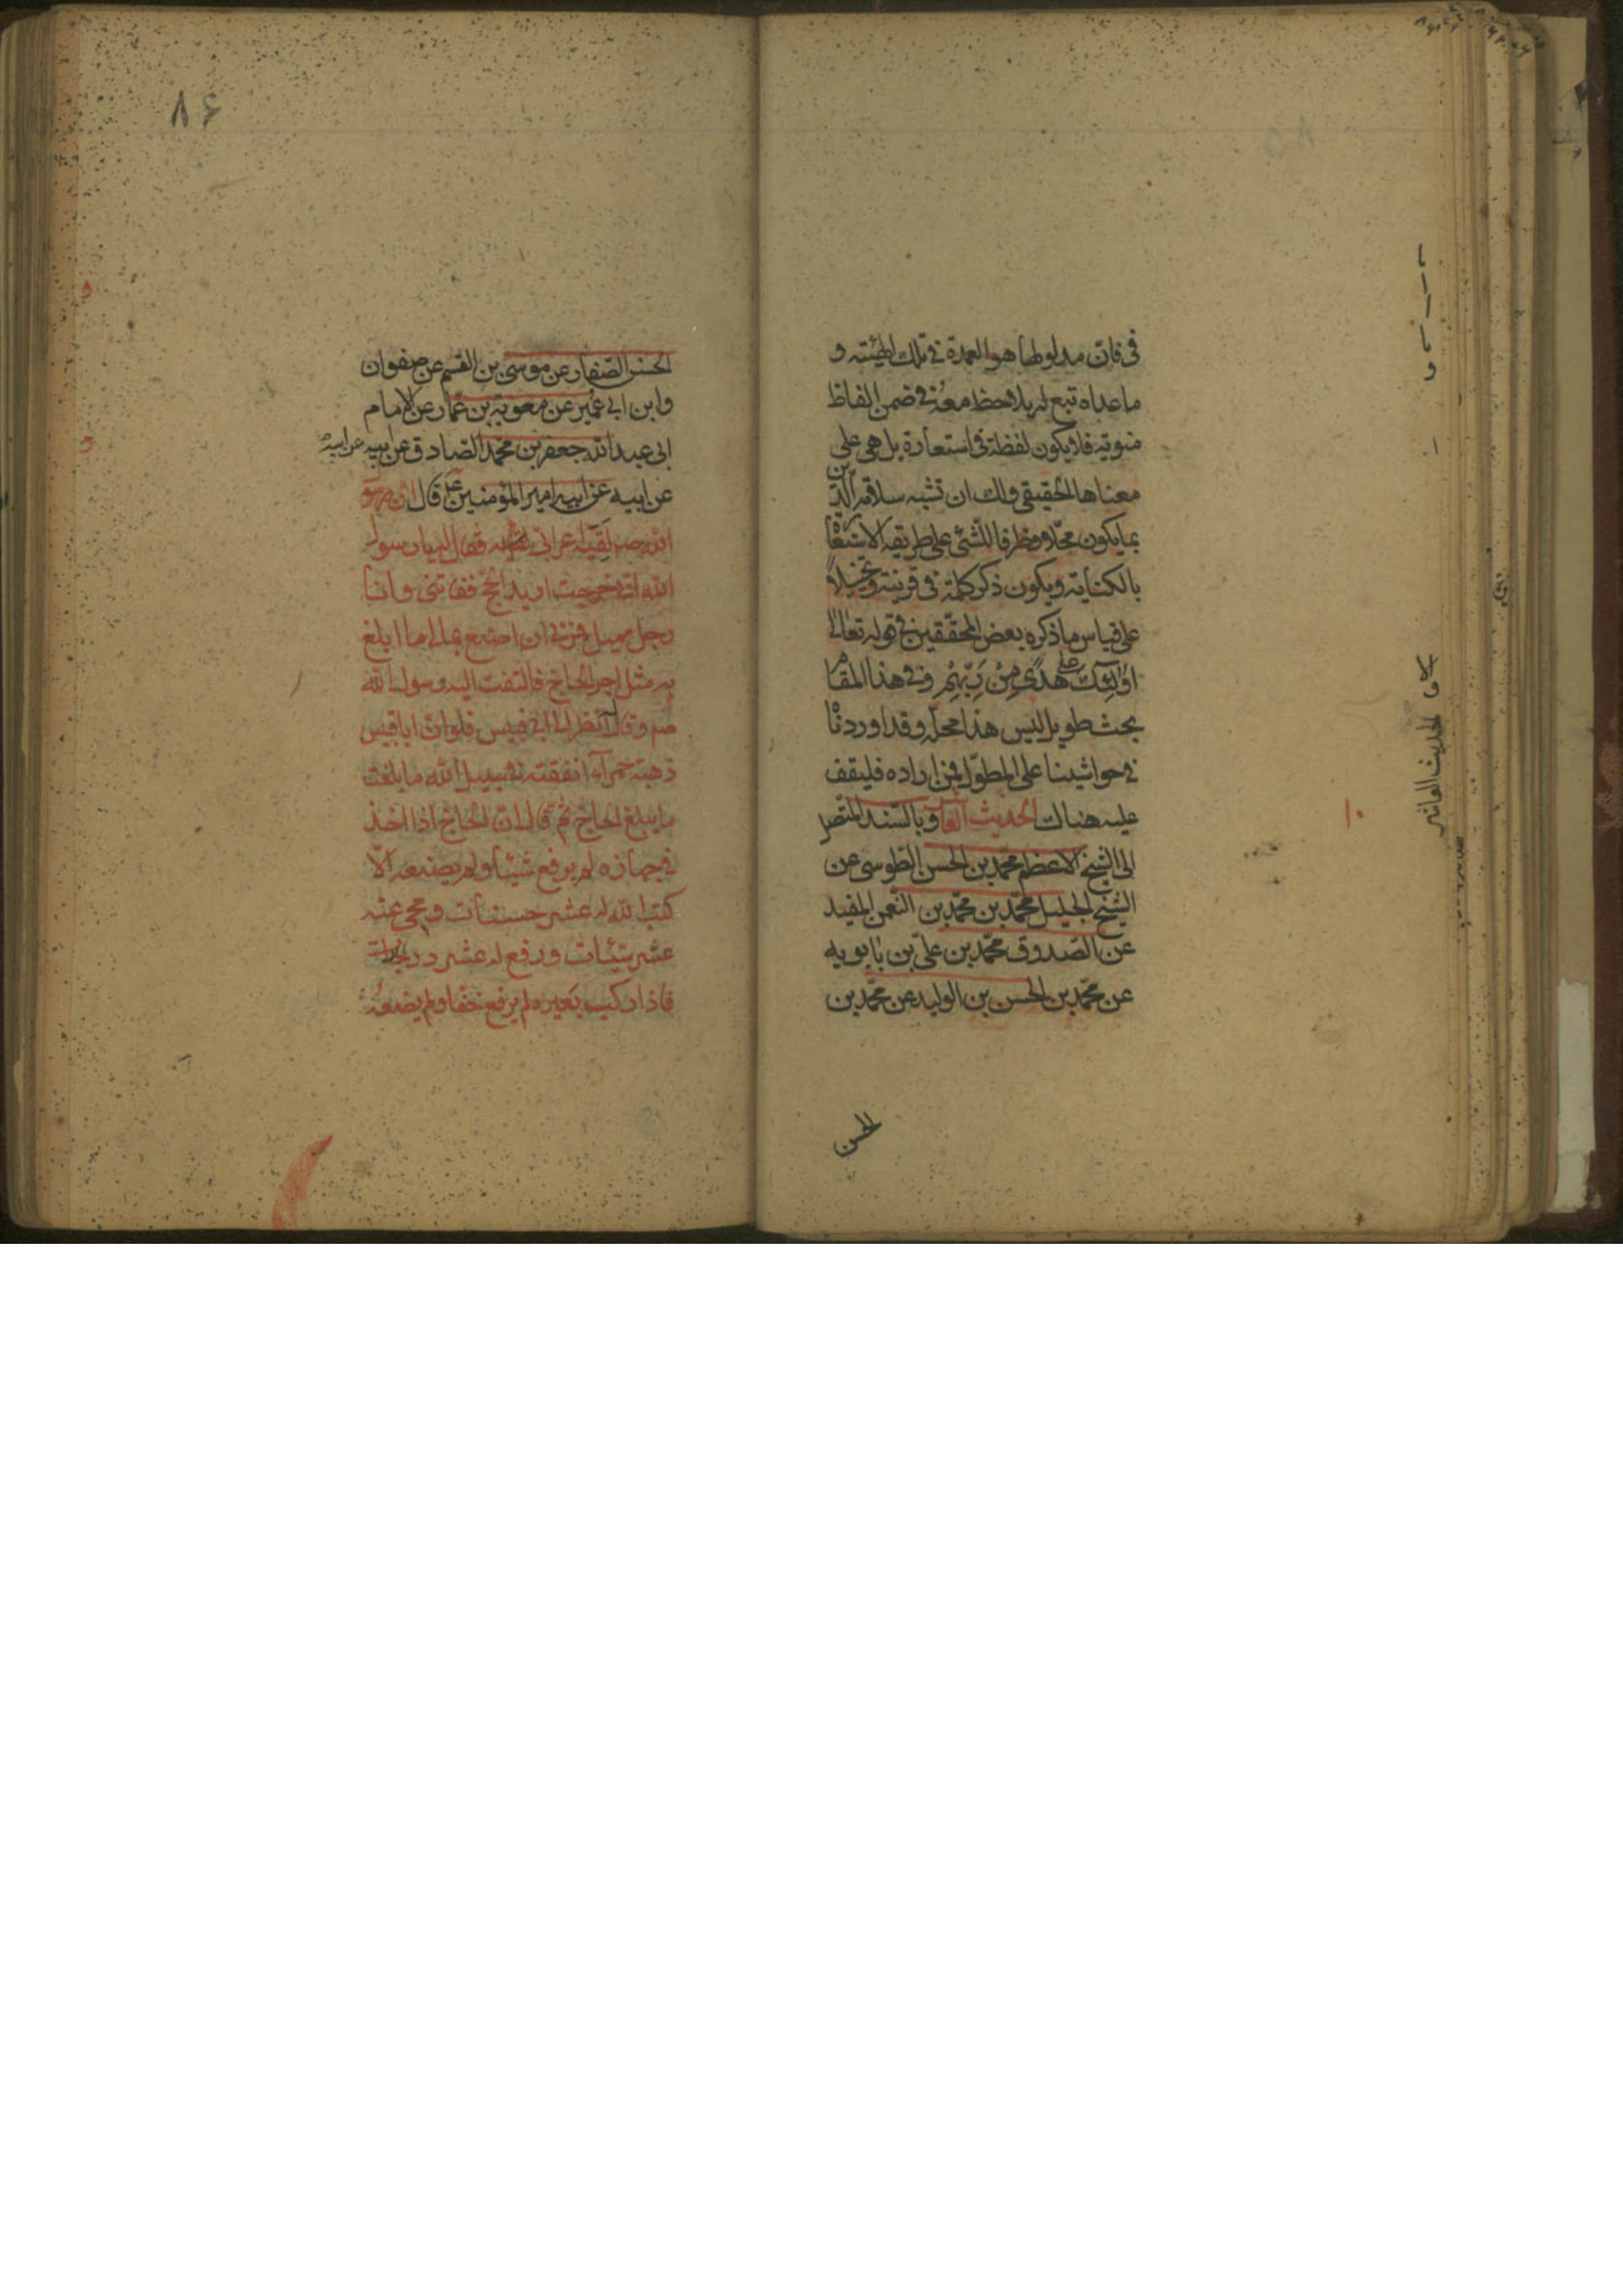 فى فان مدلولها هو العمدة فى تلك الهيئته و
ما عداه تبع له يلاحظ معه فى ضمن الفاظ
منويّة فلا يكون لفظة فى استعارة بل هى على
معناها الحقيقى ولك ان تشبه سلامة الدين
بما يكون محلا ومظرفا للشئ على طريقه الاستعا
بالكناية ويكون ذكر كلمة فى قرينة وتخيلا
على قياس ما ذكره بعض المحققين فى قوله تعالى
اولئك على هدى من ربهم وفى هذا المقام
بحث طويل ليس هذا محله وقد اوردناه
فى حواشينا على المطول فمن اراده فليقف
عليه هناك الحديث العا وبالسند المتصل
الى الشيخ الاعظم محمد بن الحسن الطوسى عن
الشيخ الجليل محمد بن محمد بن النعمن المفيد
عن الصدوق محمد بن على بن بابويه
عن محمد بن الحسن بن الوليد عن محمد بن
الحسن
الحديث العاشر
١٠
٨۶
الحسن الصفار عن موسى بن القسم عن صفوان
وابن ابى عمير عن معوية بن عمار عن الامام
ابى عبد الله جعفر بن محمد الصادق عن ابيه عن ابيه
عن ابيه عن ابيه امير المؤمنين ع قال ان رسو
الله ص لقيه اعرابى فقال له يا رسول
الله انى خرجت اريد الحج ففاتنى وانا
رجل مميل فمرنى ان اصنع بمالى ما ابلغ
به مثل اجر الحاج فالتفت اليه رسول الله
صم وقال انظر الى ابى قبيس فلو ان ابا قبيس
ذهبة حمراء انفقته فى سبيل الله ما بلغت
ما يبلغ الحاج ثم قال ان الحاج اذا اخذ
فى جهازه لم يرفع شيئا ولم يضعه الا
كتب الله له عشر حسنات ومحى عنه
عشر سيئات ورفع له عشر درجات
فاذا ركب بعيره لم يرفع خفا ولم يضعه